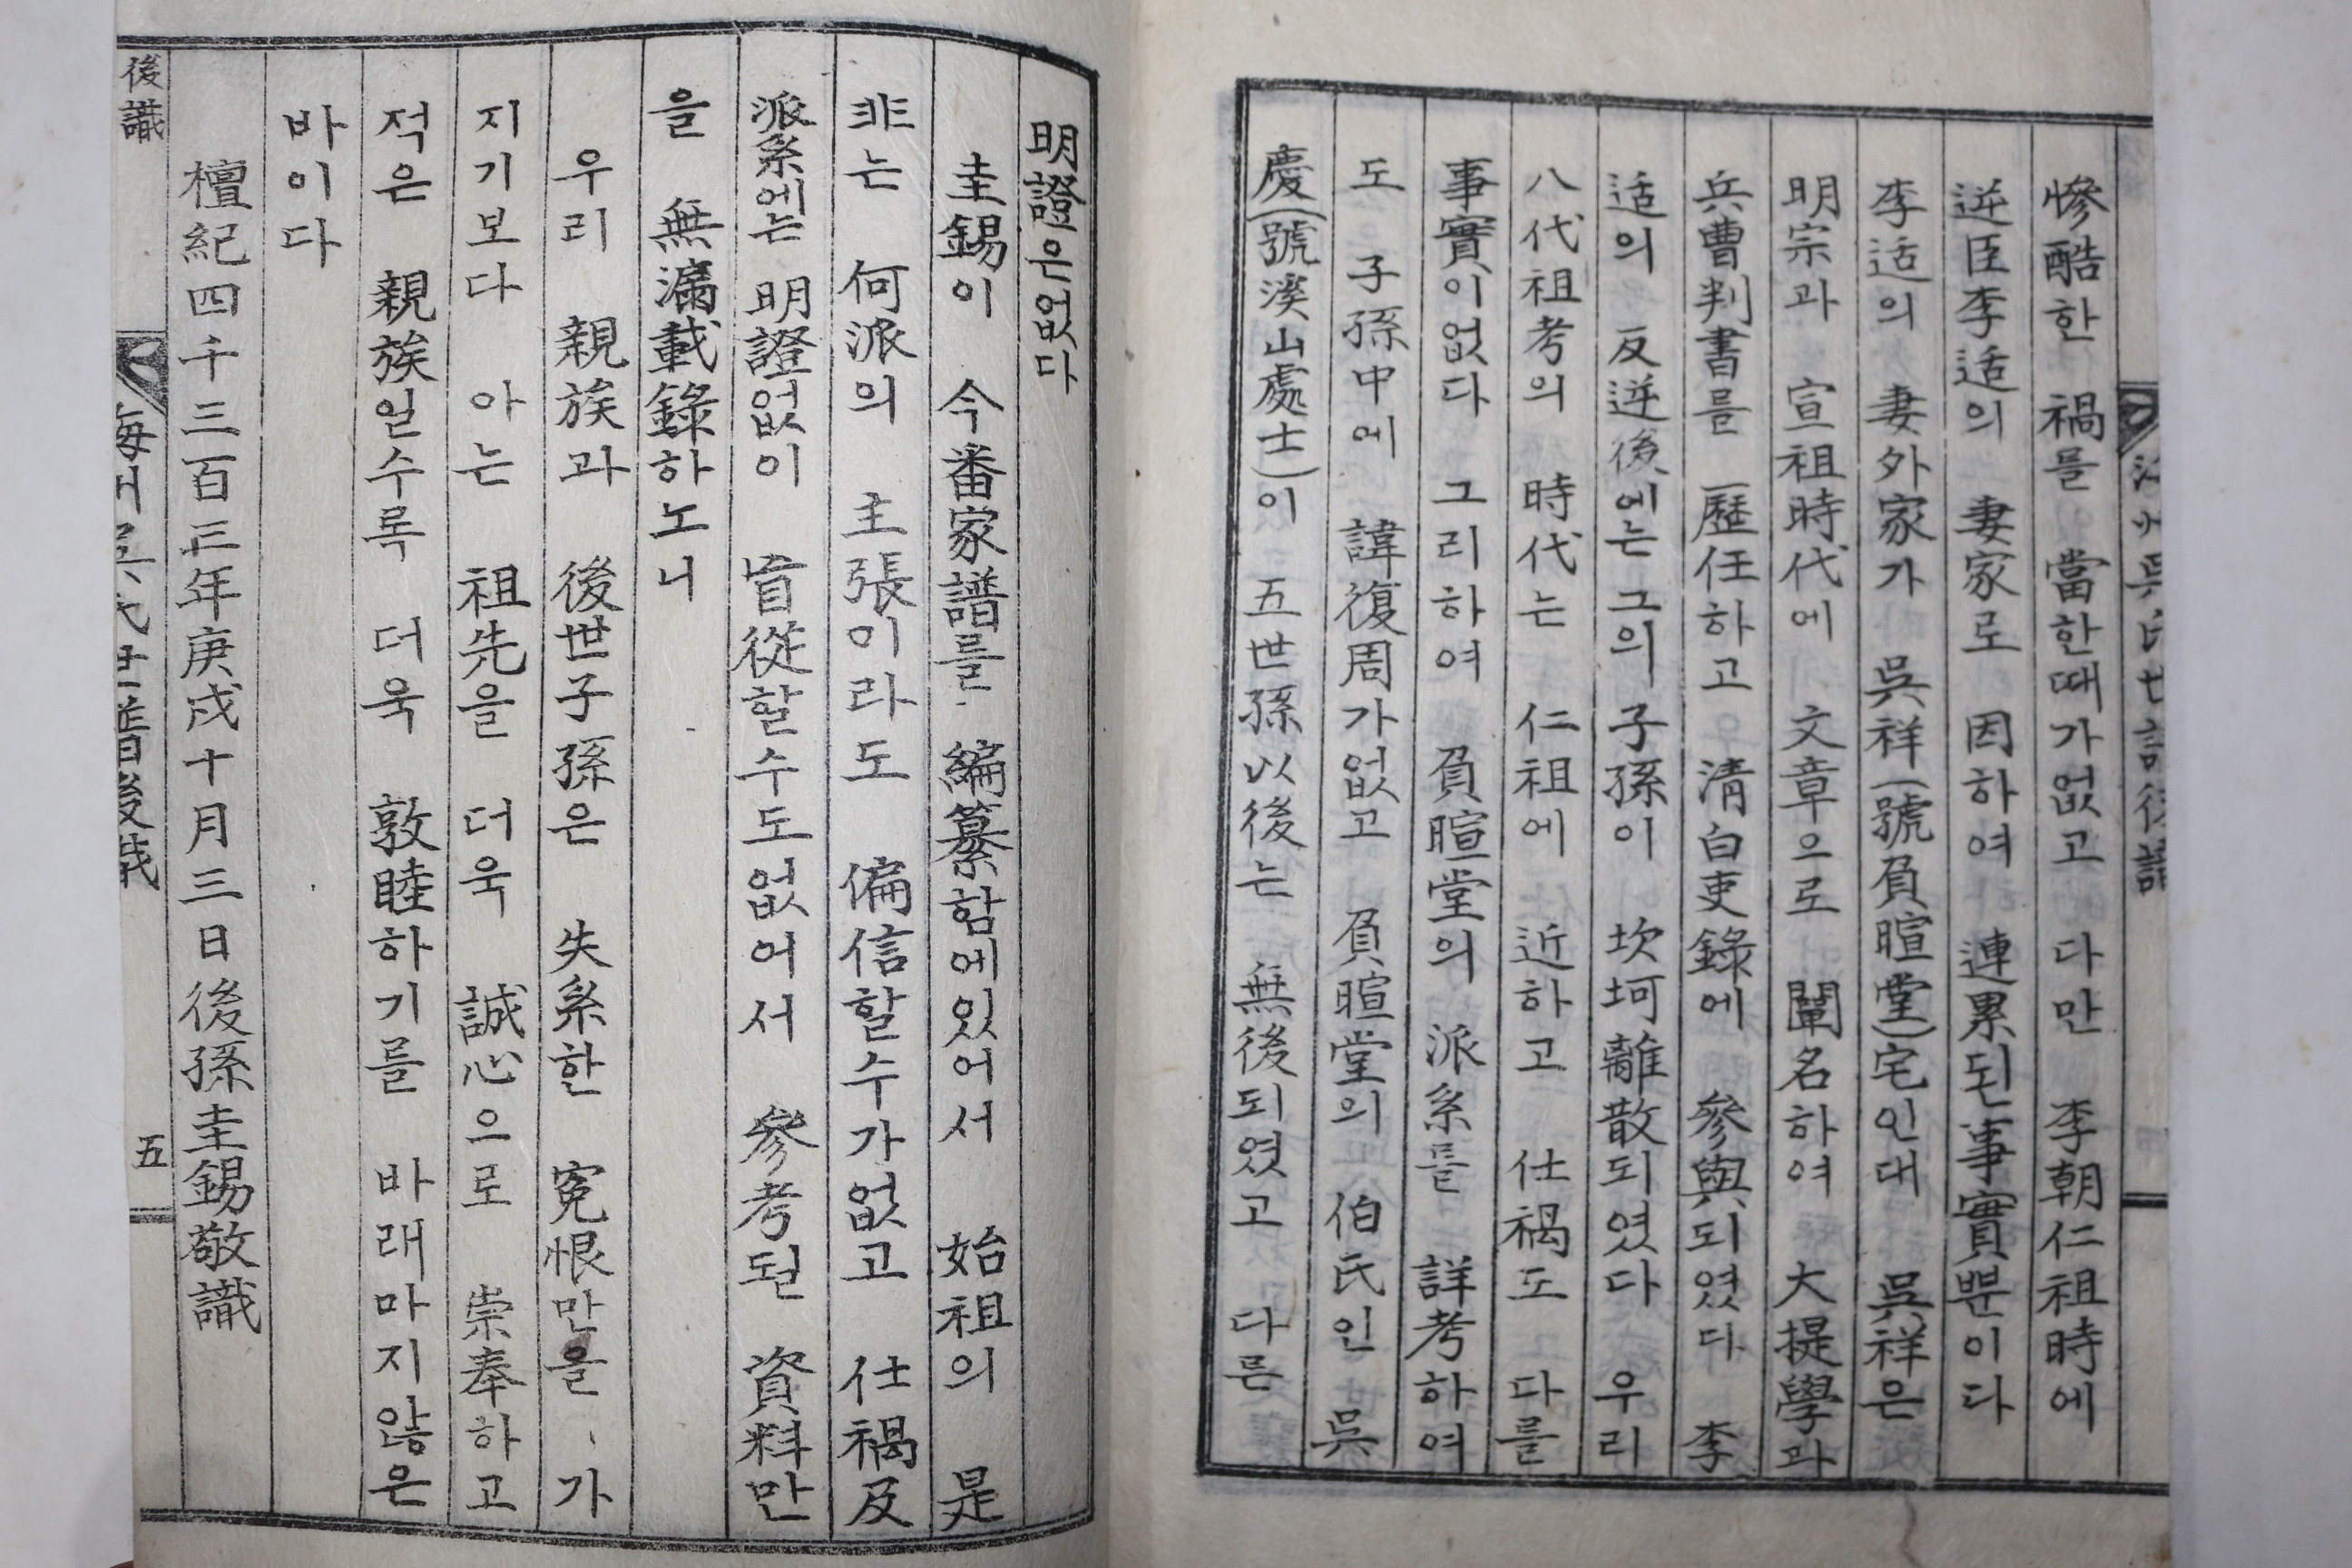 慘酷한 禍를 當한때가없고 다만 李朝仁祖時에
逆臣李适의 妻家로 因하여 連累된事實뿐이다
李适의 妻外家가 吳祥(號負暄堂)宅인대 吳祥은
明宗과 宣祖時代에 文章으로 闡名하여 大提學과
兵曹判書를 歷任하고 清白吏錄에 參與되였다 李
适의 反逆後에는 그의 子孫이 坎坷離散되였다 우리
八代祖考의 時代는 仁祖에 近하고 仕禍도 다를
事實이없다 그리하여 負暄堂의 派系를 詳考하여
도 子孫中에 諱復周가없고 負暄堂의 伯氏인 吳
慶(號溪山處士)이 五世孫以後는 無後되였고 다른
明證은없다
圭錫이 今番家譜를 編纂함에있어서 始祖의 是
非는 何派의 主張이라도 偏信할수가없고 仕禍及
派系에는 明證없이 盲從할수도없어서 參考된 資料만
을 無漏載錄하노니
우리 親族과 後世子孫은 失系한 寃恨만을 가
지기보다 아는 祖先을 더욱 誠心으로 崇奉하고
적은 親族일수록 더욱 敦睦하기를 바래마지않은
바이다
檀紀四千三百三年庚戌十月三日後孫圭錫敬識
後識
海州吳氏世譜後識
五